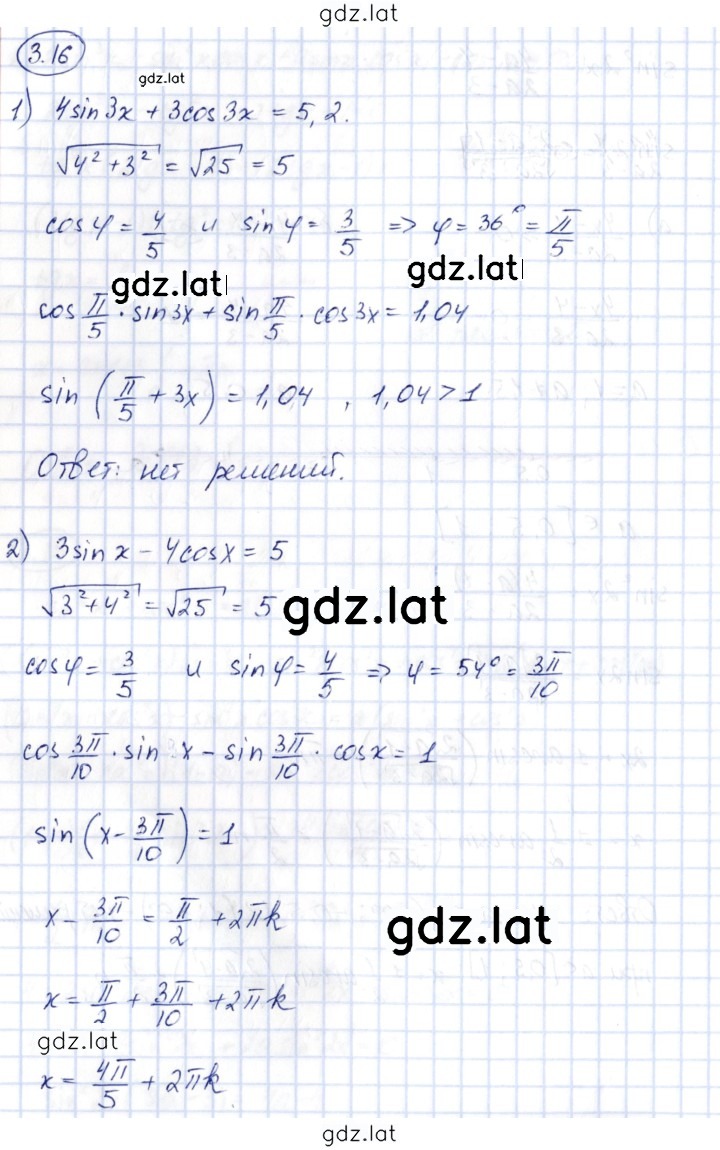 gdz.lat
3.16
gdz.lat
1) 4sin3x + 3cos3x = 5,2.
√(4² + 3²) = √25 = 5
cosφ = 4/5 и sinφ = 3/5 => φ = 36° = π/5
gdz.lat
gdz.lat
cos π/5 · sin3x + sin π/5 · cos3x = 1,04
sin (π/5 + 3x) = 1,04 , 1,04 > 1
Ответ: нет решений.
2) 3sinx - 4cosx = 5
√(3² + 4²) = √25 = 5
gdz.lat
cosφ = 3/5 и sinφ = 4/5 => φ = 54° = 3π/10
cos 3π/10 · sin x - sin 3π/10 · cosx = 1
sin (x - 3π/10) = 1
x - 3π/10 = π/2 + 2πk
gdz.lat
x = π/2 + 3π/10 + 2πk
gdz.lat
x = 4π/5 + 2πk
gdz.lat